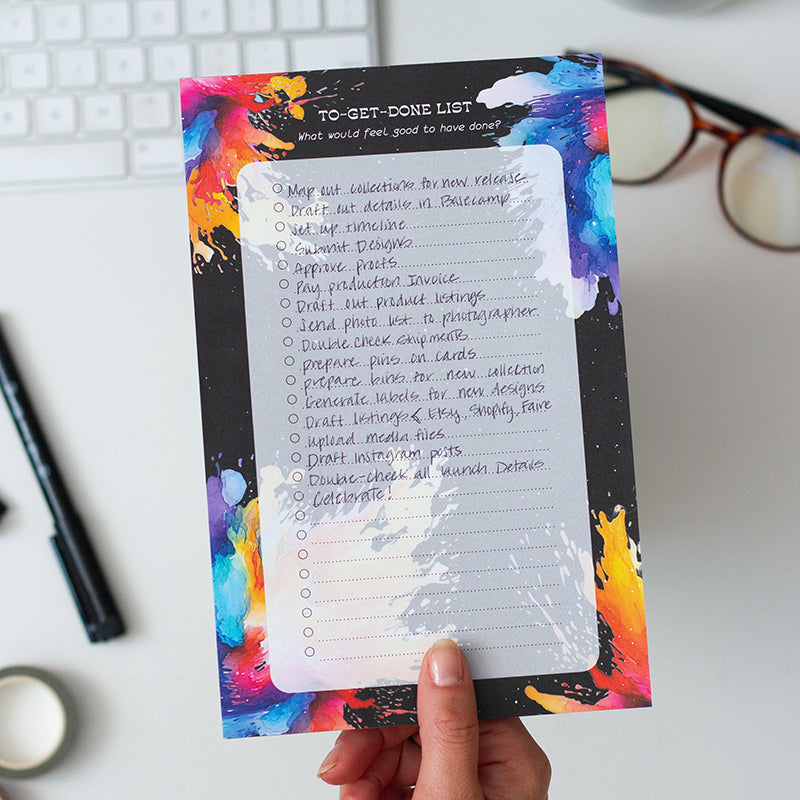 TO-GET-DONE LIST
What would feel good to have done?
Map out collections for new release
Draft out details in Basecamp
Set up timeline
Submit Designs
Approve proofs
Pay production Invoice
Draft out product listings
Send photo list to photographer
Double check shipments
prepare pins on cards
prepare bins for new collection
Generate labels for new designs
Draft listings < Etsy, Shopify, Faire
upload media files
Draft Instagram posts
Double-check all launch Details
Celebrate!